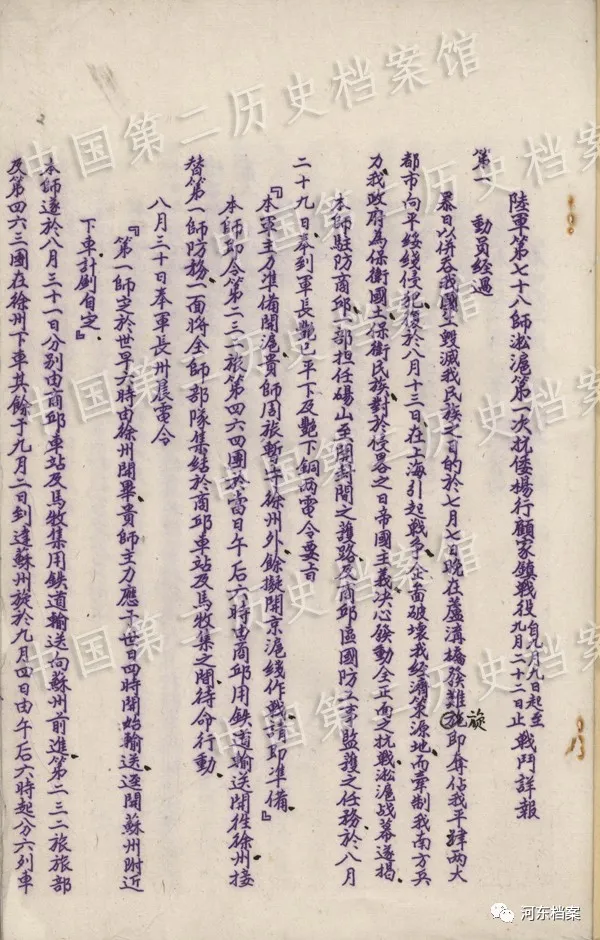 陸軍第七十八師淞滬第一次抗倭楊行顧家鎮戰役自九月九日起至九月二十二日止戰鬥詳報
第一　動員經過
暴日以併吞我國土毀滅我民族之目的於七月七晚在蘆溝橋發難旋即奪佔我平津兩大
都市向平綏綫侵犯復於八月十三日在上海引起戰爭企啚破壞我經濟策源地而牽制我南方兵
力我政府為保衛國土保衛民族對於侵畧之日帝國主義决心發動全正面之抗戰淞滬战幕遂揭
本師駐防商邱一部担任碭山至開封間之護路及商邱區國防工事監護之任務於八月
二十九日奉到軍長艷巳平下及艷下銅兩電令要旨
『本軍主力準備開滬貴師周旅暫守徐州外餘擬開京滬綫作戰請即準備』
本師即令第二三二旅第四六四團於當日午后六時由商邱用鉄道輸送開往徐州接
替第一師防務一面將全師部隊集結於商邱車站及馬牧集之間待命行動
八月三十日奉軍長卅晨電令
『第一師定於世早六時由徐州開畢貴師主力應于世日四時開始輸送逕開蘇州附近
下車計劃自定』
本師遂於八月三十一日分别由商邱車站及馬牧集用鉄道輸送向蘇州前進第二三二旅旅部
及第四六三團在徐州下車其餘于九月二日到達蘇州旋於九月四日由午后六時起分六列車
中国第二历史档案馆
中国第二历史档案馆
中国第二历史档案馆
中国第二历史档案馆
河东档案